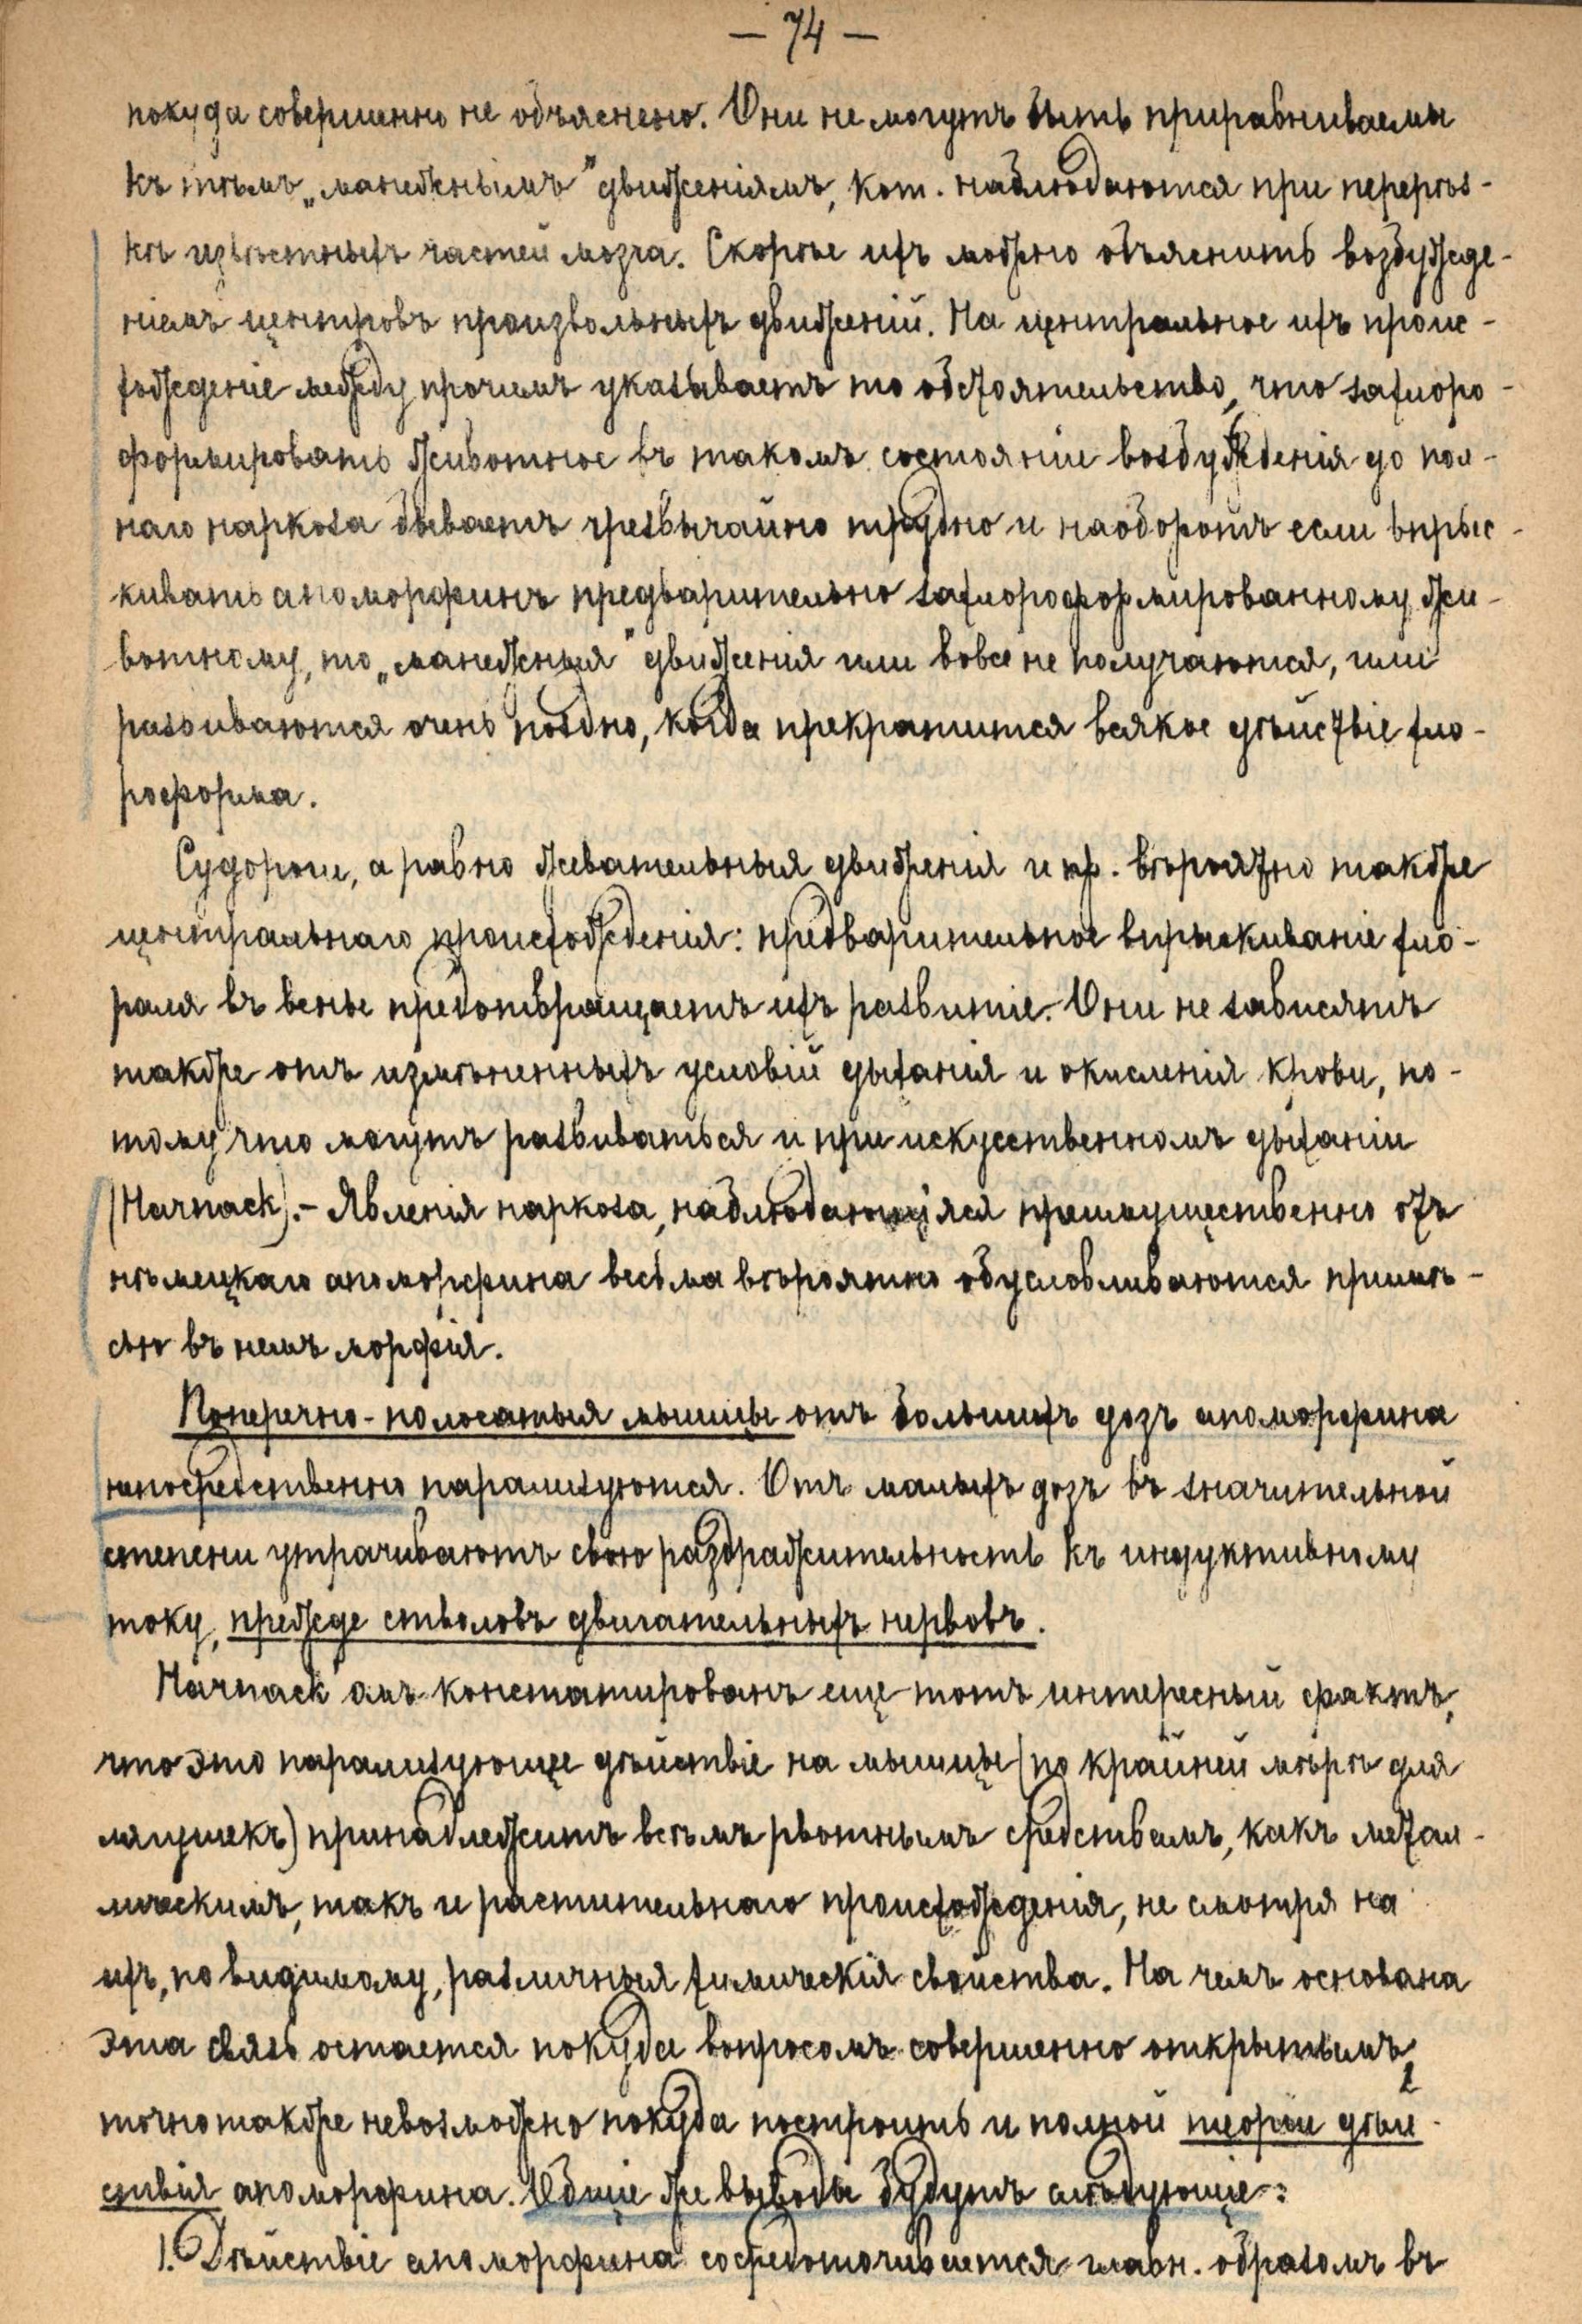 — 74 —
покуда совершенно не объяснено. Они не могутъ быть приравниваемы
къ тѣмъ „манежнымъ" движеніямъ, кот. наблюдаются при перерѣз-
кѣ извѣстныхъ частей мозга. Скорѣе ихъ можно объяснить возбужде-
ніемъ центровъ произвольныхъ движеній. На центральное ихъ проис-
хожденіе между прочимъ указываетъ то обстоятельство, что захлоро-
формировать животное въ такомъ состояніи возбужденія до пол-
наго наркоза бываетъ чрезвычайно трудно и наоборотъ если впрыс-
кивать апоморфинъ предварительно захлороформированному жи-
вотному, то „манежныя" движенія или вовсе не получаются, или
развиваются очень поздно, когда прекратится всякое дѣйствіе хло-
роформа.
Судороги, а равно жевательныя движенія и пр. вѣроятно также
центральнаго происхожденія: предварительное впрыскиваніе хло-
рала въ вены предотвращаетъ ихъ развитіе. Они не зависятъ
также отъ измѣненныхъ условій дыханія и окисленія крови, по-
тому что могутъ развиваться и при искусственномъ дыханіи
(Harnack). – Явленія наркоза, наблюдающіяся преимущественно отъ
нѣмецкаго апоморфина весьма вѣроятно обусловливаются примѣ-
сью въ немъ морфія.
Поперечно-полосатыя мышцы отъ большихъ дозъ апоморфина
непосредственно парализуются. Отъ малыхъ дозъ въ значительной
степени утрачиваютъ свою раздражительность къ индуктивному
току, прежде стволовъ двигательныхъ нервовъ.
Harnack'омъ констатированъ еще тотъ интересный фактъ,
что это парализующее дѣйствіе на мышцы (по крайней мѣрѣ для
лягушекъ) принадлежитъ всѣмъ рвотнымъ средствамъ, какъ метал-
лическимъ, такъ и растительнаго происхожденія, не смотря на
ихъ, по видимому, различныя химическія свойства. На чемъ основана
эта связь остается покуда вопросомъ совершенно открытымъ,
точно также невозможно покуда построить и полной теоріи дѣй-
ствія апоморфина. Общіе же выводы будутъ слѣдующіе:
1. Дѣйствіе апоморфина сосредоточивается главн. образомъ въ